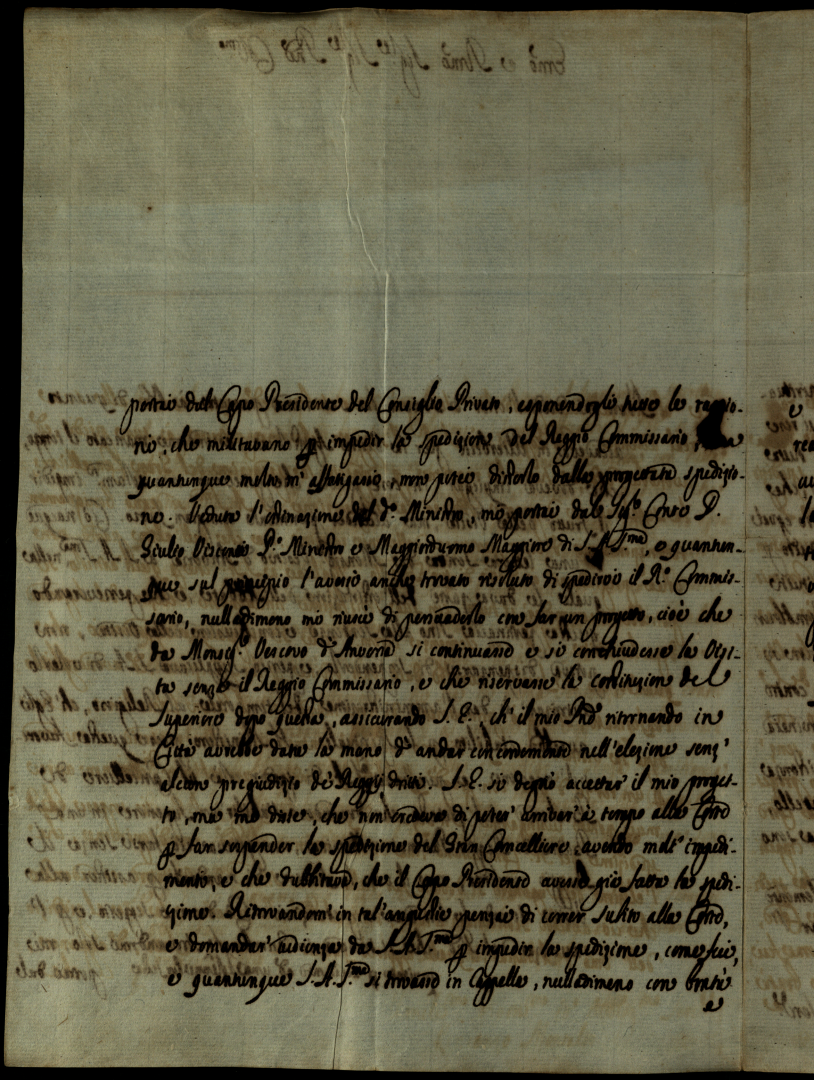 portai dal Capo Presidente del Consiglio Privato, esponendogli tutte le raggio-
ni, che militavano p impedir la spedizione del Reggio Commissario, ma
quantunque molto m'affatigassi, non potei distorlo dalla progettata spedizio-
ne. Veduta l'ostinazione del d.º Ministro, mi portai dal Sig.r Conte D.
Giulio Visconti P.º Ministro e Maggiorduomo Maggiore di S.A.S.ma, e quantun-
que sul principio l'avessi anche trovato risoluto di spedirvi il R.º Commis-
sario, nulladimeno mi riuscì di persuaderlo con far un progetto, cioè che
da Monsig.r Vescovo d'Anversa si continuasse e si concludesse la Visi-
ta senza il Reggio Commissario, e che riservasse la constituzion del
Superiore dopo questa, assicurando S.E., ch'il mio Pnd ritornando in
Città avrebbe data la mano d'andar nell'elezione senz'
alcun pregiudizio de Reggij dritti. S.E. si degnò accettar il mio proget-
to, ma mi disse, che non credeva di poter arrivar à tempo alla Corte
p far sospender la spedizione del Gran Cancelliere, avendo molti impedi-
menti, e che dubbitava, che il Capo Presidente avesse già fatta la spedi-
zione. Ritrovandomi in tal'angustie pensai di correr subito alla Corte,
e domandar udienza da S.A.S.ma p impedir la spedizione, come feci,
e quantunque S.A.S.ma si trovasse in Cappella, nulladimeno con bontà
e